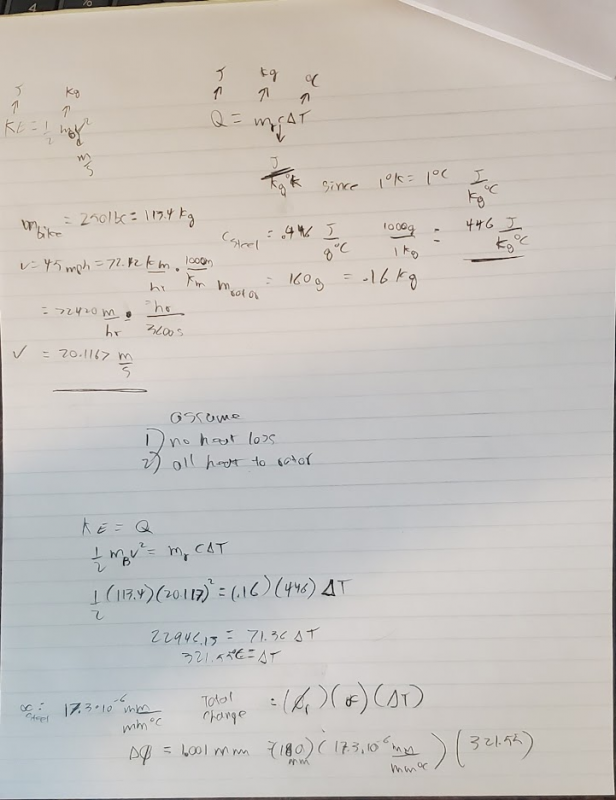 J kg
KE = 1/2 m_B v²
m/s
J kg °C
Q = m_r c ΔT
J/kg°K since 1°K = 1°C J/kg°C
m_bike = 250 lbs = 113.4 kg
c_steel = .446 J/g°C 1000g/1kg = 446 J/kg°C
v = 45 mph = 72.42 km/hr · 1000m/km
m_rotor = 160g = .16 kg
= 72420 m/hr · hr/3600s
v = 20.1167 m/s
assume
1) no heat loss
2) all heat to rotor
KE = Q
1/2 m_B v² = m_r c ΔT
1/2 (113.4)(20.117)² = (.16)(446) ΔT
22946.15 = 71.36 ΔT
321.55°C = ΔT
α steel : 17.3·10⁻⁶ mm/mm°C Total change = ( )(α)(ΔT)
Δϕ = 1.001 mm (180 mm)(17.3·10⁻⁶ mm/mm°C)(321.55)